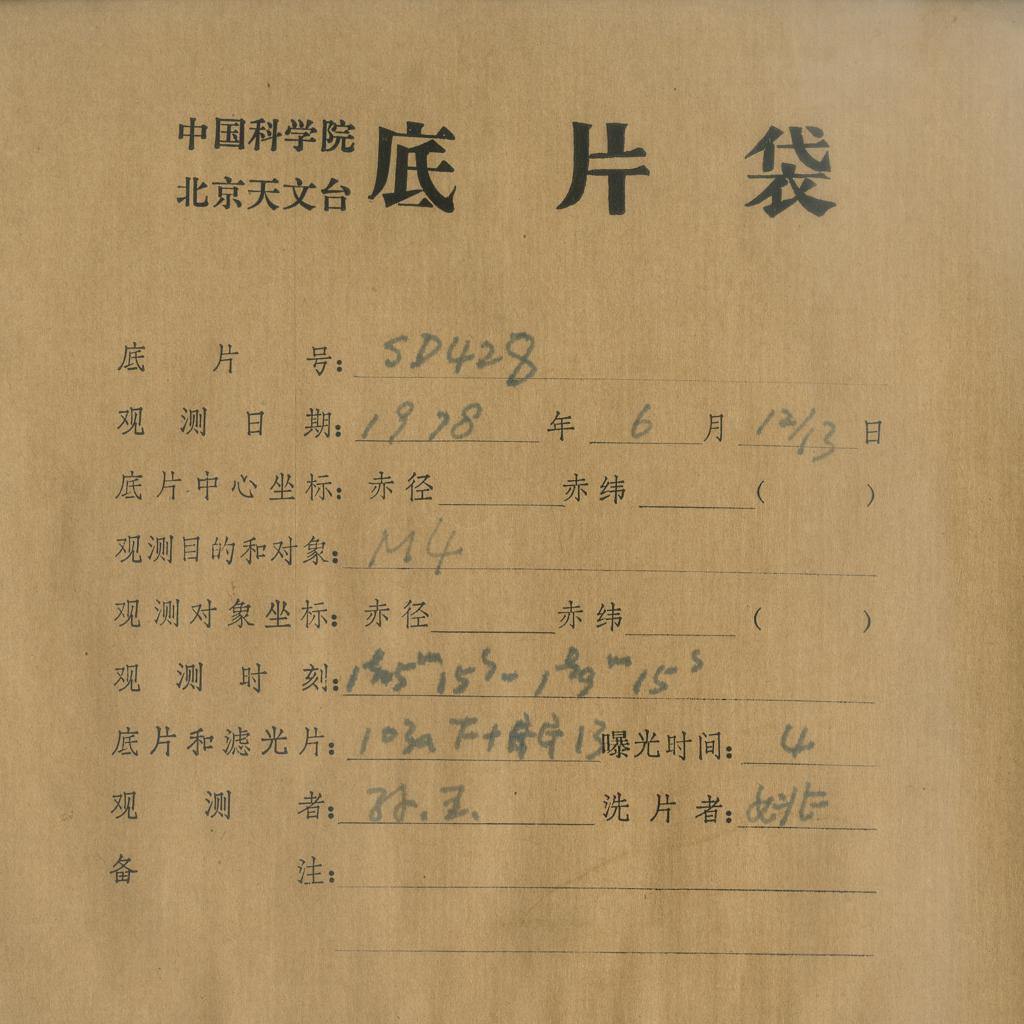 中国科学院
北京天文台
底片袋
底片号: SD428
观测日期: 1978年 6月 12/13日
底片中心坐标: 赤径 赤纬 ( )
观测目的和对象: M4
观测对象坐标: 赤径 赤纬 ( )
观测时刻: 15ˢ - 15ˢ
底片和滤光片: 103a 13 曝光时间: 4
观测者: 孙.王. 洗片者:
备注: